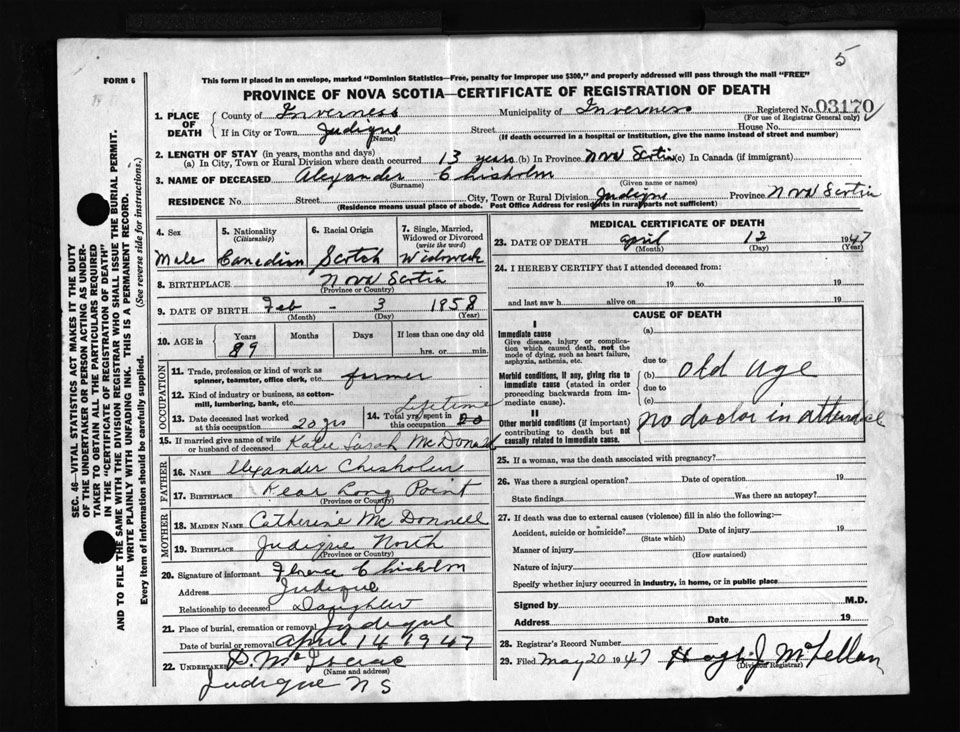 5
FORM 6
This form if placed in an envelope, marked "Dominion Statistics—Free, penalty for improper use $300," and properly addressed will pass through the mail "FREE"
PROVINCE OF NOVA SCOTIA—CERTIFICATE OF REGISTRATION OF DEATH
1. PLACE OF DEATH County of Inverness Municipality of Inverness Registered No. 03170
(For use of Registrar General only)
If in City or Town Judique Street House No.
(Name) (If death occurred in a hospital or institution, give the name instead of street and number)
2. LENGTH OF STAY (in years, months and days)
(a) In City, Town or Rural Division where death occurred 13 years (b) In Province Nova Scotia (c) In Canada (if immigrant)
3. NAME OF DECEASED Alexander Chisholm
(Surname) (Given name or names)
RESIDENCE No. Street City, Town or Rural Division Judique Province Nova Scotia
(Residence means usual place of abode. Post Office Address for residents in rural parts not sufficient)
4. Sex 5. Nationality (Citizenship) 6. Racial Origin 7. Single, Married, Widowed or Divorced (write the word)
Male Canadian Scotch Widowed
8. BIRTHPLACE Nova Scotia
(Province or Country)
9. DATE OF BIRTH Feb - 3 1858
(Month) (Day) (Year)
10. AGE in Years Months Days If less than one day old
89 hrs. or min.
OCCUPATION
11. Trade, profession or kind of work as spinner, teamster, office clerk, etc. farmer
12. Kind of industry or business, as cotton-mill, lumbering, bank, etc.
Lifetime
13. Date deceased last worked at this occupation 20 yrs 14. Total yrs. spent in this occupation
15. If married give name of wife or husband of deceased Katie Sarah McDonald
FATHER
16. NAME Alexander Chisholm
17. BIRTHPLACE Rear Long Point
(Province or Country)
MOTHER
18. MAIDEN NAME Catherine McDonnell
19. BIRTHPLACE Judique North
(Province or Country)
20. Signature of informant Florence Chisholm
Address Judique
Relationship to deceased Daughter
21. Place of burial, cremation or removal Judique
Date of burial or removal April 14 1947
22. UNDERTAKER D. McIsaac
(Name and address)
Judique N S
MEDICAL CERTIFICATE OF DEATH
23. DATE OF DEATH April 12 1947
(Month) (Day) (Year)
24. I HEREBY CERTIFY that I attended deceased from:
19 to 19
and last saw h alive on 19
CAUSE OF DEATH
I
Immediate cause (a)
Give disease, injury or complication which caused death, not the mode of dying, such as heart failure, asphyxia, asthenia, etc.
due to
Morbid conditions, if any, giving rise to immediate cause (stated in order proceeding backwards from immediate cause). (b) old age
due to
(c)
II
Other morbid conditions (if important) contributing to death but not causally related to immediate cause. No doctor in attendance
25. If a woman, was the death associated with pregnancy?
26. Was there a surgical operation? Date of operation 19
State findings Was there an autopsy?
27. If death was due to external causes (violence) fill in also the following:—
Accident, suicide or homicide? Date of injury 19
(State which)
Manner of injury
(How sustained)
Nature of injury
Specify whether injury occurred in industry, in home, or in public place
Signed by M.D.
Address Date 19
28. Registrar's Record Number
29. Filed May 20 1947 Hugh J. McLellan
(Division Registrar)
SEC. 46—VITAL STATISTICS ACT MAKES IT THE DUTY
OF THE UNDERTAKER OR PERSON ACTING AS UNDER-
TAKER TO OBTAIN ALL THE PARTICULARS REQUIRED
IN THE "CERTIFICATE OF REGISTRATION OF DEATH"
AND TO FILE THE SAME WITH THE DIVISION REGISTRAR WHO SHALL ISSUE THE BURIAL PERMIT.
WRITE PLAINLY WITH UNFADING INK. THIS IS A PERMANENT RECORD.
Every item of information should be carefully supplied. (See reverse side for instructions.)